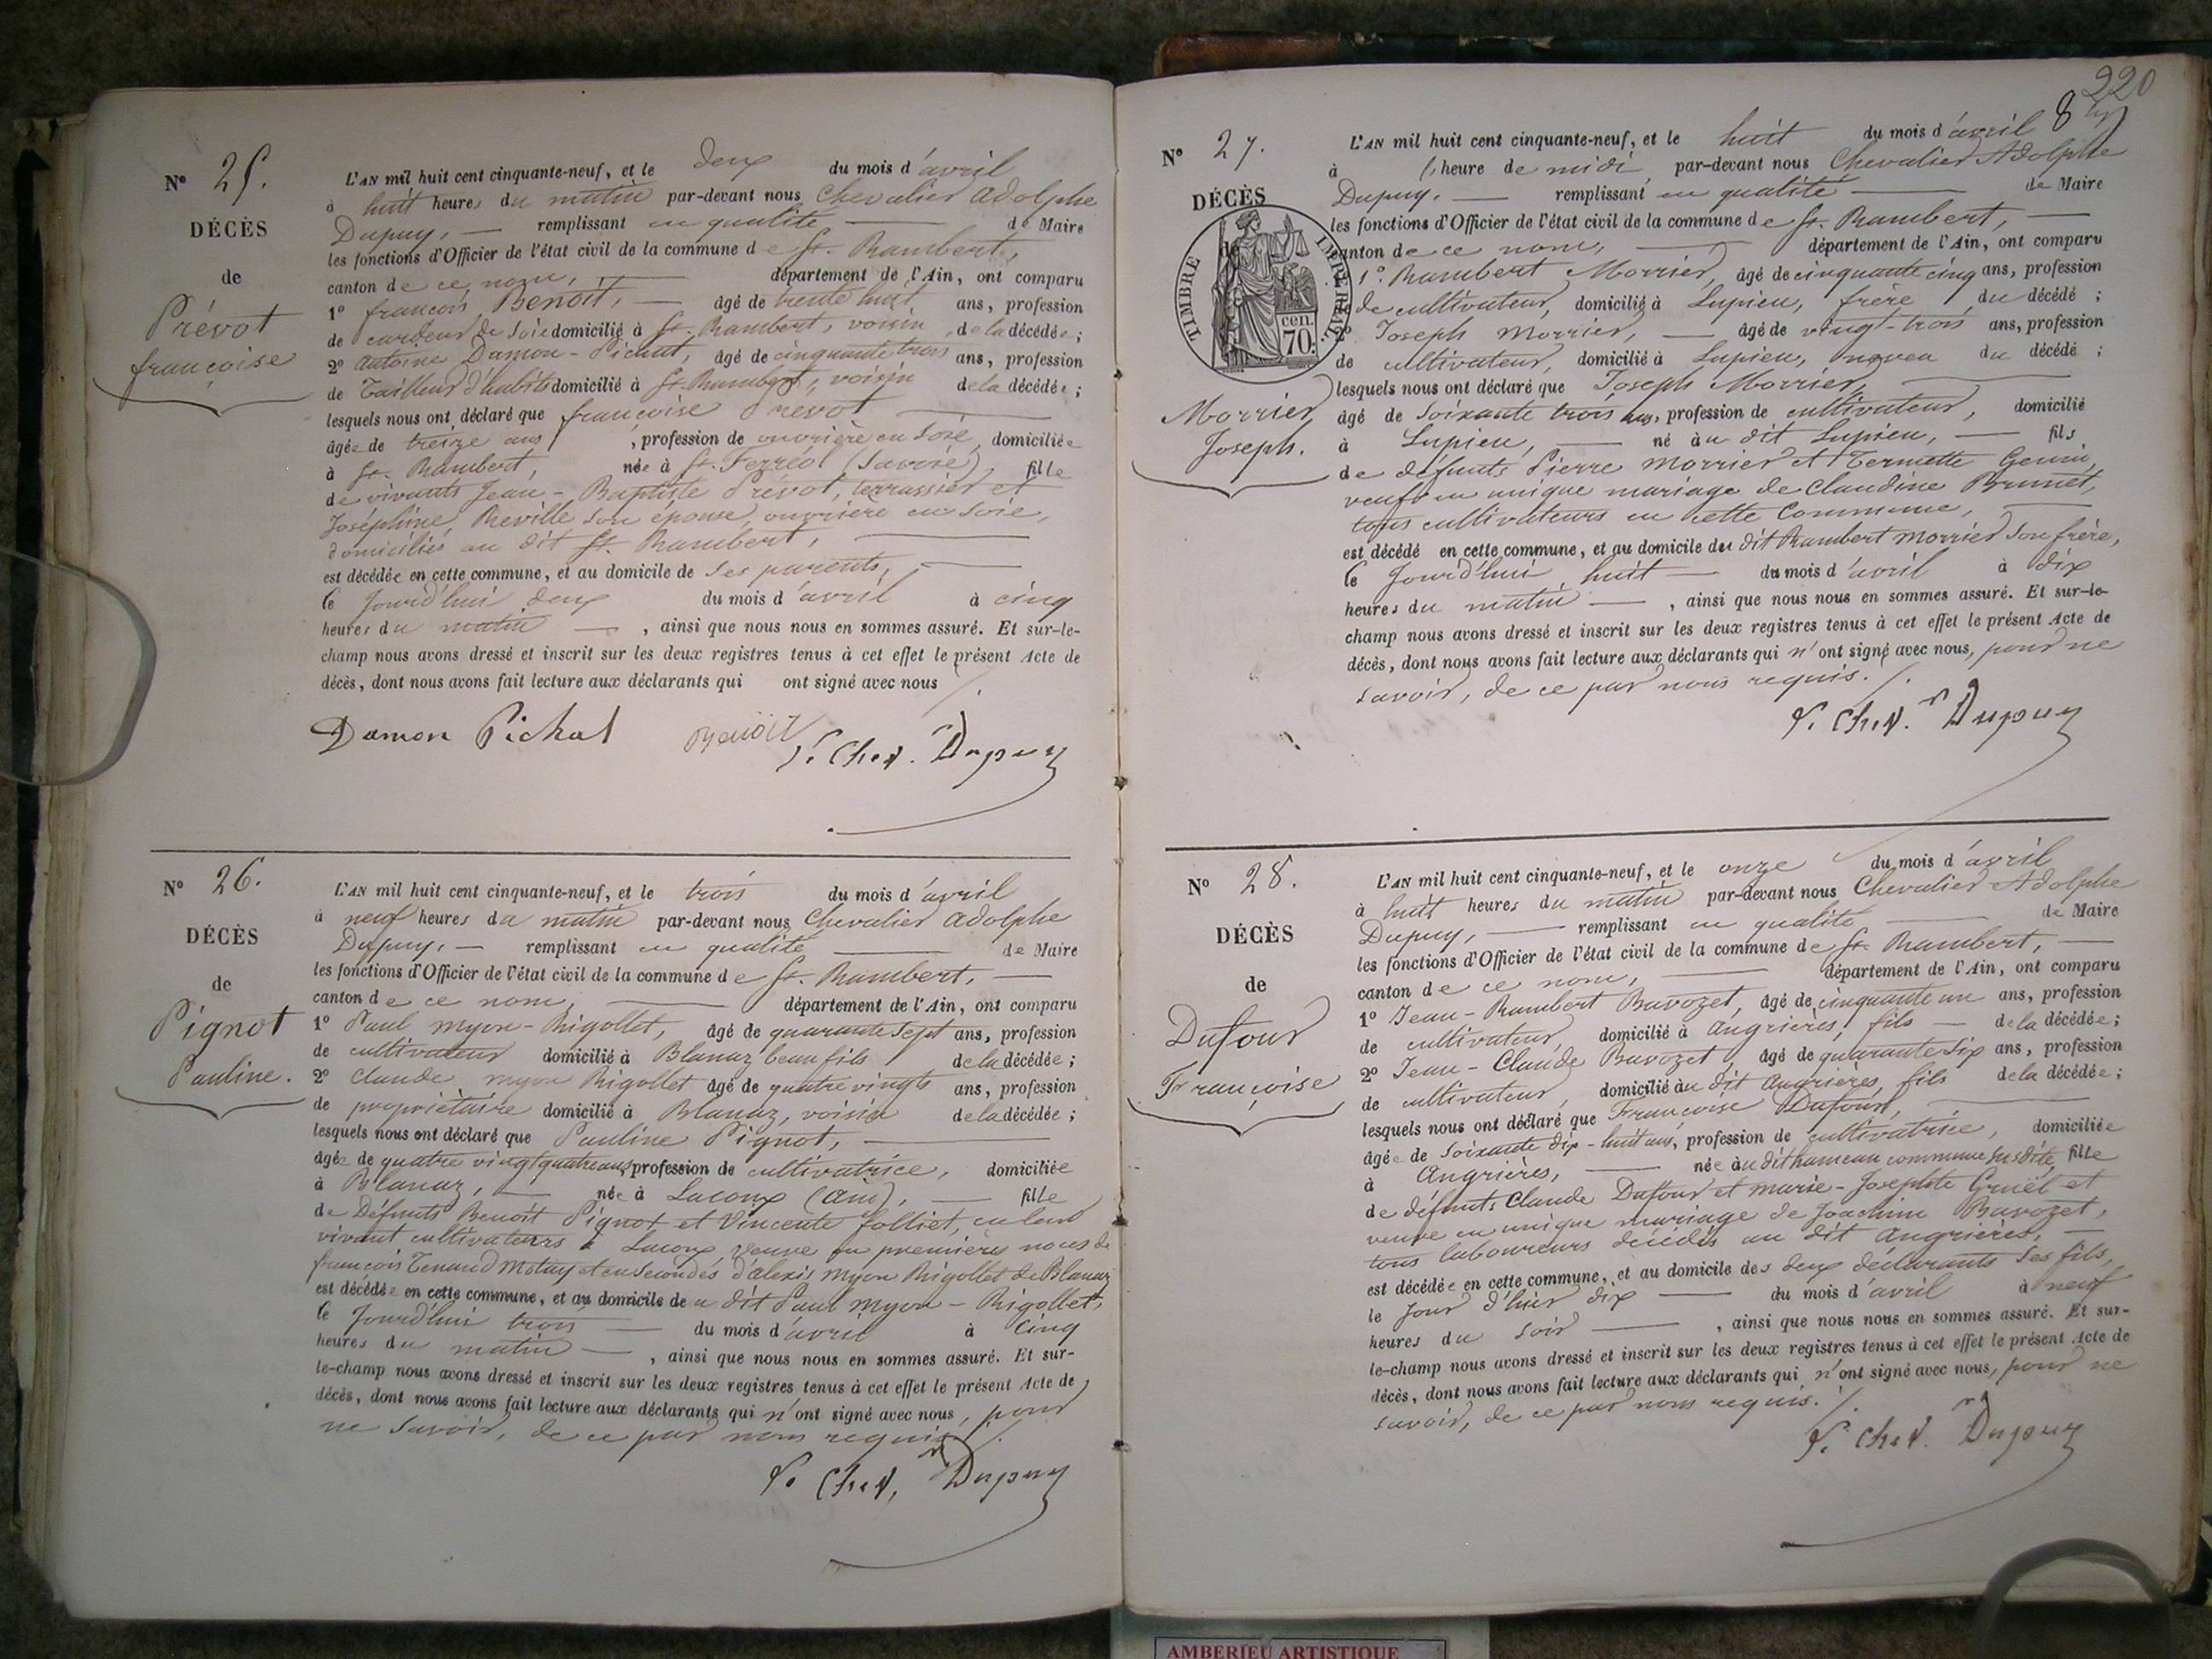 Nº 25.
DÉCÈS
de
Prévot
françoise
L'AN mil huit cent cinquante-neuf, et le deux du mois d'avril
à huit heures du matin par-devant nous Chevalier Adolphe
Dupuy, remplissant en qualité de Maire
les fonctions d'Officier de l'état civil de la commune de St. Rambert,
canton de ce nom, département de l'Ain, ont comparu
1º françois Benoît, âgé de trente huit ans, profession
de cardeur de soie domicilié à St. Rambert, voisin de la décédée;
2º Antoine Damon-Pichat, âgé de cinquante trois ans, profession
de Tailleur d'habits domicilié à St. Rambert, voisin de la décédée;
lesquels nous ont déclaré que françoise Prévot
âgée de treize ans, profession de ouvrière en soie, domiciliée
à St. Rambert, née à St. Ferréol (Savoie), fille
de vivants Jean-Baptiste Prévot, terrassier et
Joséphine Reville son épouse, ouvrière en soie,
domiciliés au dit St. Rambert,
est décédée en cette commune, et au domicile de ses parents,
le jourd'hui deux du mois d'avril à cinq
heures du matin, ainsi que nous nous en sommes assuré. Et sur-le-
champ nous avons dressé et inscrit sur les deux registres tenus à cet effet le présent Acte de
décès, dont nous avons fait lecture aux déclarants qui ont signé avec nous ./.
Damon Pichat Benoît
Chev. Dupuy
Nº 26.
DÉCÈS
de
Pignot
Pauline.
L'AN mil huit cent cinquante-neuf, et le trois du mois d'avril
à neuf heures du matin par-devant nous Chevalier Adolphe
Dupuy, remplissant en qualité de Maire
les fonctions d'Officier de l'état civil de la commune de St. Rambert,
canton de ce nom, département de l'Ain, ont comparu
1º Paul Myon-Rigollet, âgé de quarante sept ans, profession
de cultivateur domicilié à Blanaz beau fils de la décédée;
2º Claude Myon Rigollet âgé de quatre vingts ans, profession
de propriétaire domicilié à Blanaz, voisin de la décédée;
lesquels nous ont déclaré que Pauline Pignot,
âgée de quatre vingt quatre ans, profession de cultivatrice, domiciliée
à Blanaz, née à Lacoux (Ain), fille
de Défunts Benoît Pignot et Vincente folliet, en leur
vivant cultivateurs à Lacoux, veuve en premières noces de
françois Tenand Motay et en secondes d'alexis Myon Rigollet de Blanaz
est décédée en cette commune, et au domicile du dit Paul Myon-Rigollet,
le jourd'hui trois du mois d'avril à cinq
heures du matin, ainsi que nous nous en sommes assuré. Et sur-
le-champ nous avons dressé et inscrit sur les deux registres tenus à cet effet le présent Acte de
décès, dont nous avons fait lecture aux déclarants qui n'ont signé avec nous, pour
ne savoir, de ce par nous requis ./.
Chev. Dupuy
220
Nº 27.
DÉCÈS
de
TIMBRE IMPÉRIAL
70. cen.
Morrier
Joseph.
L'AN mil huit cent cinquante-neuf, et le huit du mois d'avril
à l'heure de midi par-devant nous Chevalier Adolphe
Dupuy, remplissant en qualité de Maire
les fonctions d'Officier de l'état civil de la commune de St. Rambert,
canton de ce nom, département de l'Ain, ont comparu
1º Rambert Morrier, âgé de cinquante cinq ans, profession
de cultivateur, domicilié à Lupieu, frère du décédé;
2º Joseph Morrier, âgé de vingt-trois ans, profession
de cultivateur, domicilié à Lupieu, neveu du décédé;
lesquels nous ont déclaré que Joseph Morrier,
âgé de soixante trois ans, profession de cultivateur, domicilié
à Lupieu, né au dit Lupieu, fils
de défunts Pierre Morrier et Termette
veuf en unique mariage de Claudine Brunet,
tous cultivateurs en cette Commune,
est décédé en cette commune, et au domicile du dit Rambert Morrier son frère,
le jourd'hui huit du mois d'avril à dix
heures du matin, ainsi que nous nous en sommes assuré. Et sur-le-
champ nous avons dressé et inscrit sur les deux registres tenus à cet effet le présent Acte de
décès, dont nous avons fait lecture aux déclarants qui n'ont signé avec nous, pour ne
savoir, de ce par nous requis ./.
Chev. Dupuy
Nº 28.
DÉCÈS
de
Dufour
Françoise
L'AN mil huit cent cinquante-neuf, et le onze du mois d'avril
à huit heures du matin par-devant nous Chevalier Adolphe
Dupuy, remplissant en qualité de Maire
les fonctions d'Officier de l'état civil de la commune de St. Rambert,
canton de ce nom, département de l'Ain, ont comparu
1º Jean-Rambert Bavozet, âgé de cinquante un ans, profession
de cultivateur, domicilié à Angrières, fils de la décédée;
2º Jean-Claude Bavozet, âgé de quarante six ans, profession
de cultivateur, domicilié au dit Angrières, fils de la décédée;
lesquels nous ont déclaré que Françoise Dufour,
âgée de soixante dix-huit ans, profession de cultivatrice, domiciliée
à Angrières, née au dit hameau commune susdite, fille
de défunts Claude Dufour et Marie-Josephte Gruël et
veuve en unique mariage de Joachim Bavozet,
tous laboureurs décédés au dit Angrières,
est décédée en cette commune, et au domicile des deux déclarants ses fils,
le jour d'hier dix du mois d'avril à neuf
heures du soir, ainsi que nous nous en sommes assuré. Et sur-
le-champ nous avons dressé et inscrit sur les deux registres tenus à cet effet le présent Acte de
décès, dont nous avons fait lecture aux déclarants qui n'ont signé avec nous, pour ne
savoir, de ce par nous requis ./.
Chev. Dupuy
AMBERIEU ARTISTIQUE